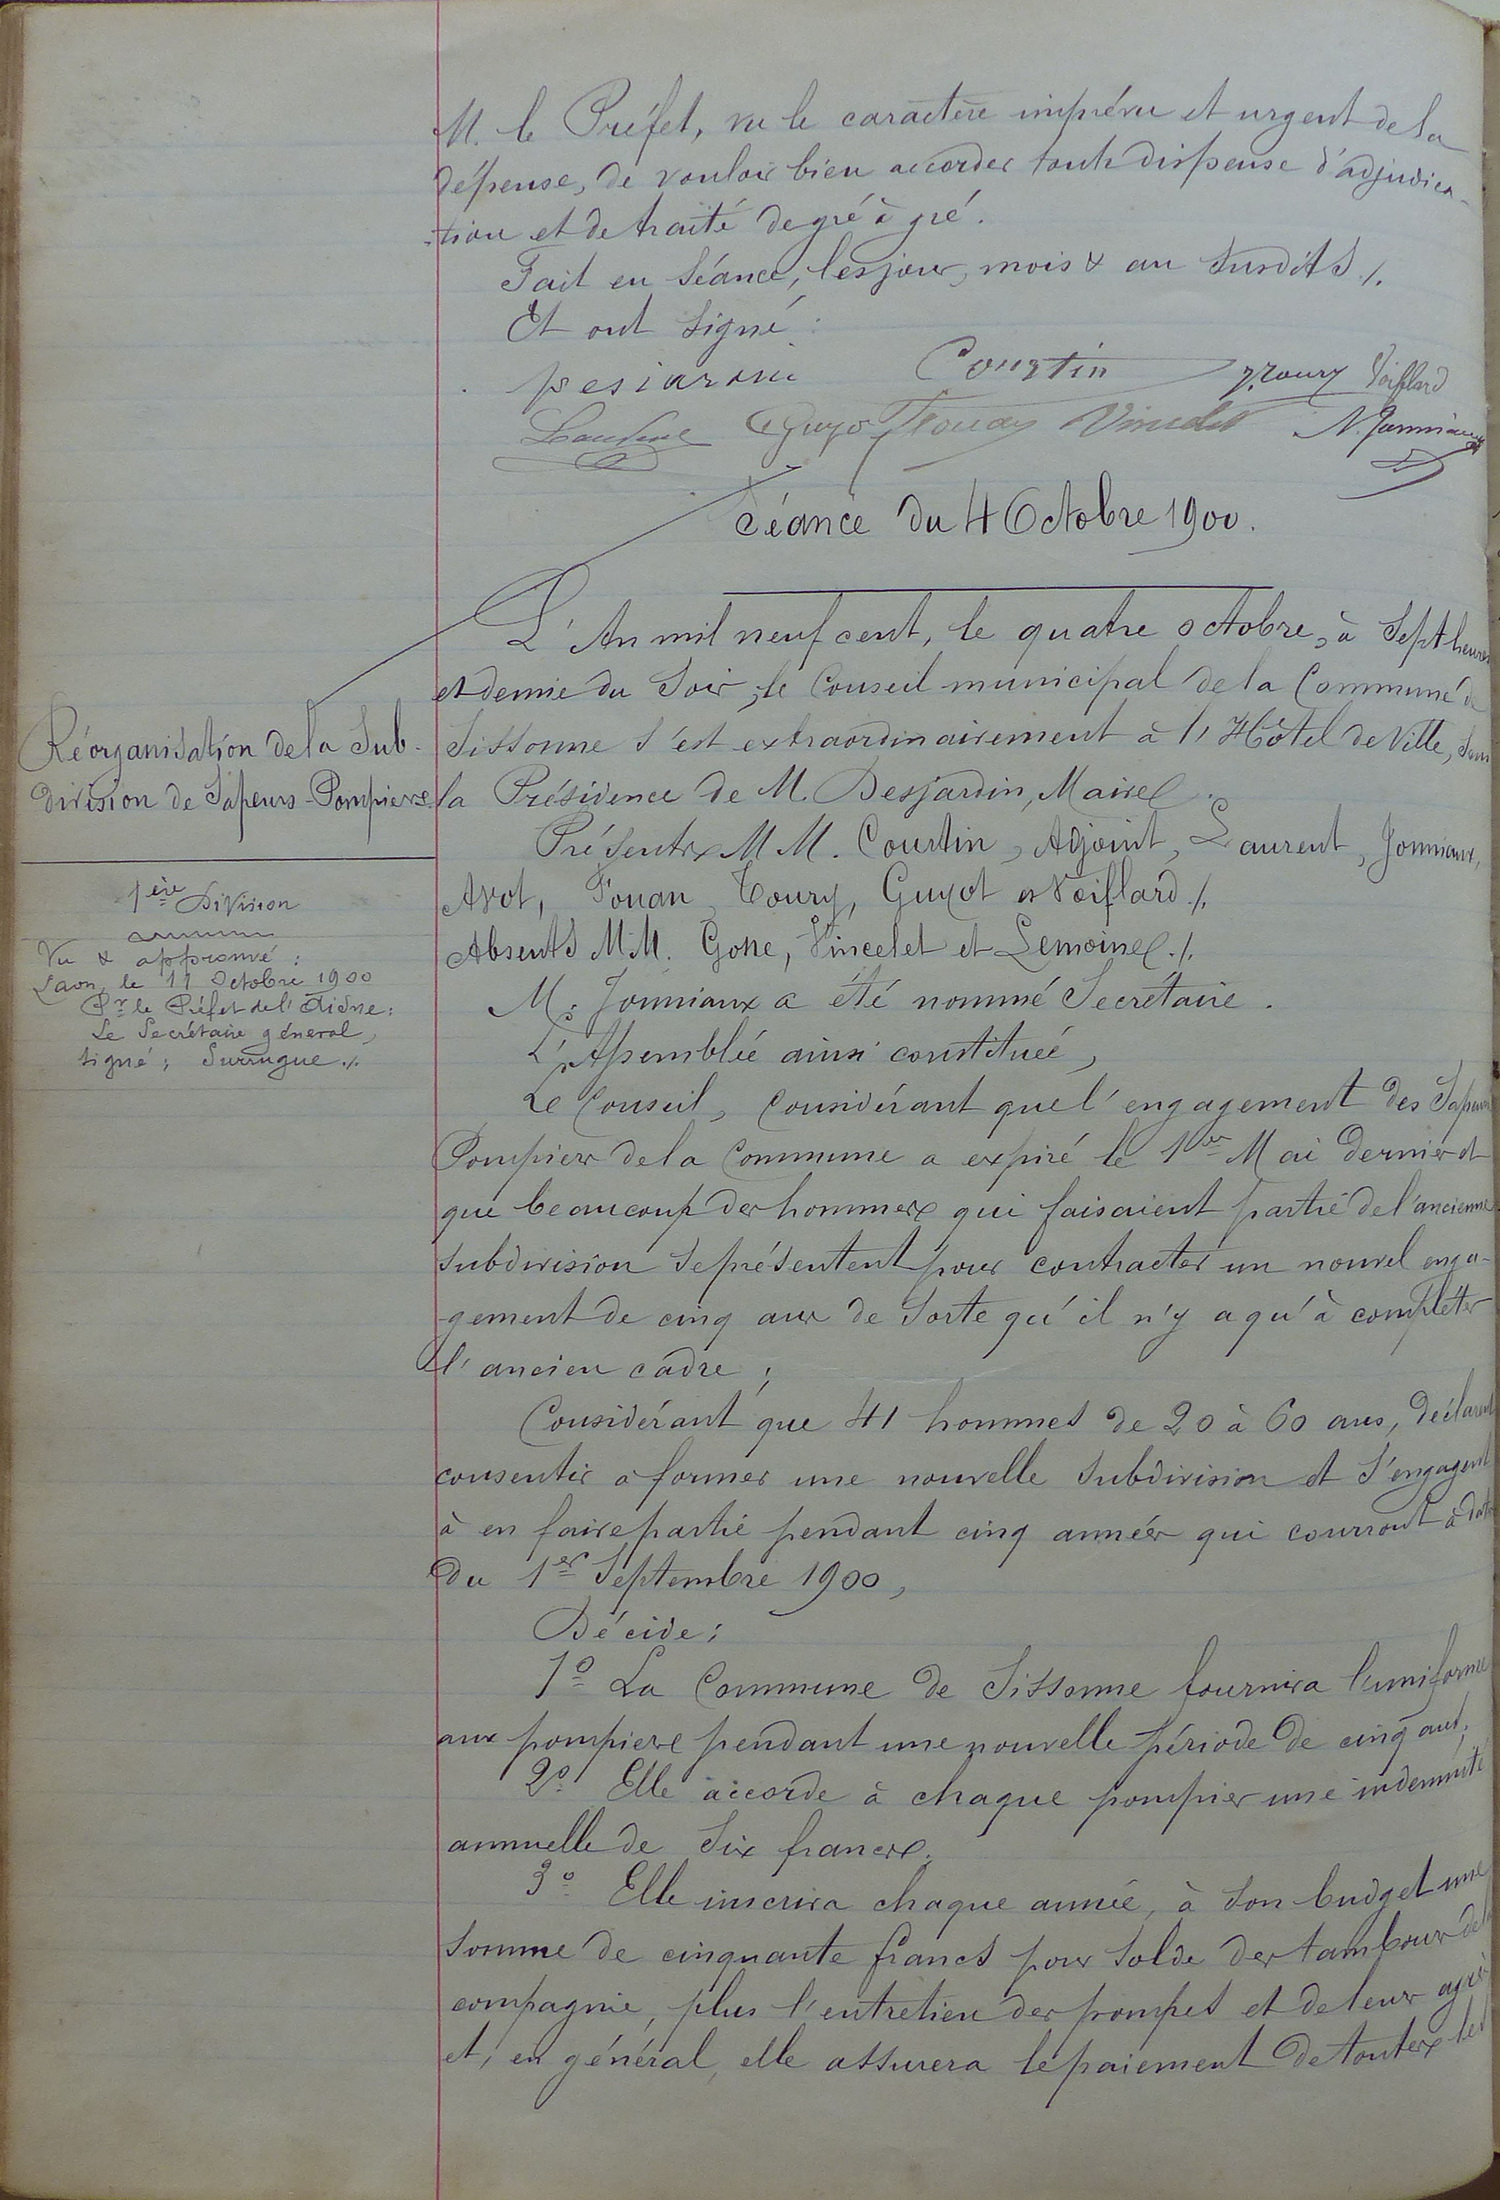 M. le Préfet, vu le caractère imprévu et urgent de la
dépense, de vouloir bien accorder toute dispense d'adjudica-
-tion et de traité de gré à gré.
Fait en Séance, les jour, mois & an susdits ./.
Et ont signé :
Courtin Toury Voiflard
Laurent Guyot Fouan Vincelet N. Jonniaux
Séance du 4 Octobre 1900.
L'An mil neuf cent, le quatre octobre, à Sept heures
et demie du Soir, le Conseil municipal de la Commune de
Sissonne s'est extraordinairement à l'Hôtel de Ville, sous
la Présidence de M. Desjardin, Maire.
Présents MM. Courtin, Adjoint, Laurent, Jonniaux,
Avot, Fouan, Toury, Guyot et Voiflard ./.
Absents MM. Gone, Vincelet et Lemoine ./.
M. Jonniaux a été nommé Secrétaire.
L'Assemblée ainsi constituée,
Le Conseil, Considérant que l'engagement des Sapeurs
Pompiers de la Commune a expiré le 1er Mai dernier et
que beaucoup des hommes qui faisaient partie de l'ancienne
subdivision se présentent pour contracter un nouvel enga-
-gement de cinq ans de sorte qu'il n'y a qu'à compléter
l'ancien cadre ;
Considérant que 41 hommes de 20 à 60 ans, déclarent
consentir à former une nouvelle subdivision et s'engagent
à en faire partie pendant cinq années qui courront à dater
du 1er Septembre 1900,
Décide :
1º La Commune de Sissonne fournira l'uniforme
aux pompiers pendant une nouvelle période de cinq ans ;
2º Elle accorde à chaque pompier une indemnité
annuelle de Six francs.
3º Elle inscrira chaque année, à son budget une
somme de cinquante francs pour solde des tambours de la
compagnie, plus l'entretien des pompes et de leurs agrès
et, en général, elle assurera le paiement de toutes les
Réorganisation de la Sub-
division de Sapeurs-Pompiers
1ère Division
Vu & approuvé :
Laon, le 11 Octobre 1900
Pr le Préfet de l'Aisne :
Le Secrétaire général,
signé : Surrugue ./.